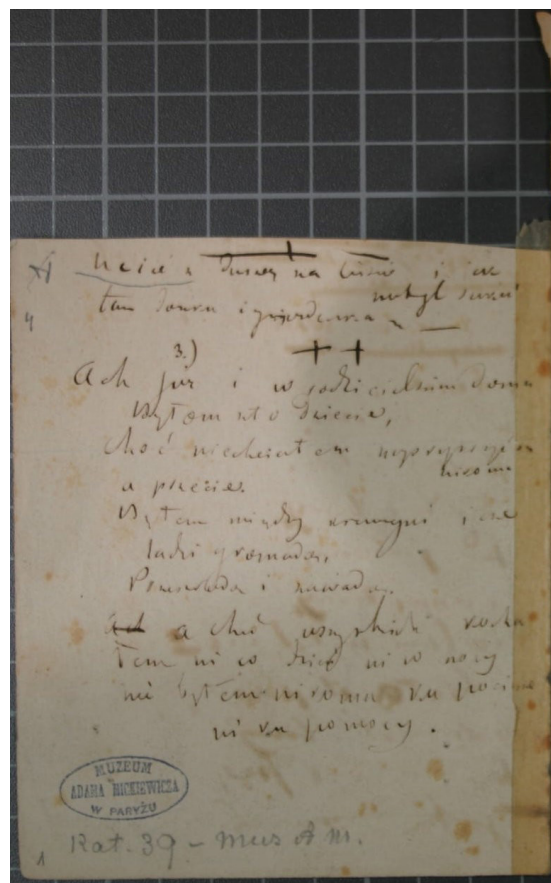 Uciec z duszą na listek i jak
motyl szukać
tam domku i gniazdeczka —
3.)
Ach już i w rodzicielskim domu
Byłem złe dziecię,
Choć niechciałem
nikomu
a przecie.
Byłem między krewnymi i
ludzi gromadą,
Przeszkodą i zawadą.
Ach a choć wszystkich kocha
łem ni w dzień ni w nocy
nie byłem nikomu ku
ni ku pomocy.
MUZEUM
ADAMA MICKIEWICZA
W PARYŻU
Kat. 39 - Mus A M.
1